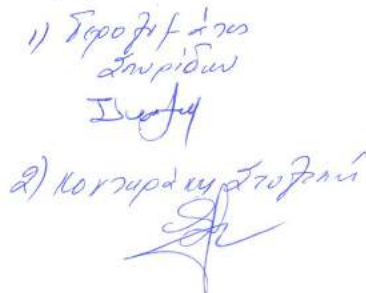 1) Ιερολυμάτος
Σπυρίδων
2) Κονταράκη Στυλιανή